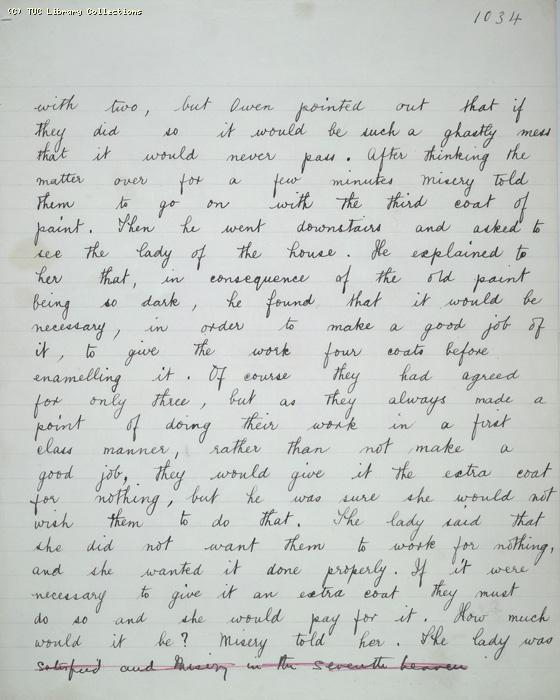 (C) TUC Library Collections
1034
with two, but Owen pointed out that if
they did so it would be such a ghastly mess
that it would never pass. After thinking the
matter over for a few minutes Misery told
them to go on with the third coat of
paint. Then he went downstairs and asked to
see the lady of the house. He explained to
her that, in consequence of the old paint
being so dark, he found that it would be
necessary, in order to make a good job of
it, to give the work four coats before
enamelling it. Of course they had agreed
for only three, but as they always made a
point of doing their work in a first
class manner, rather than not make a
good job, they would give it the extra coat
for nothing, but he was sure she would not
wish them to do that. The lady said that
she did not want them to work for nothing,
and she wanted it done properly. If it were
necessary to give it an extra coat they must
do so and she would pay for it. How much
would it be? Misery told her. The lady was
satisfied and Misery in the seventh heaven